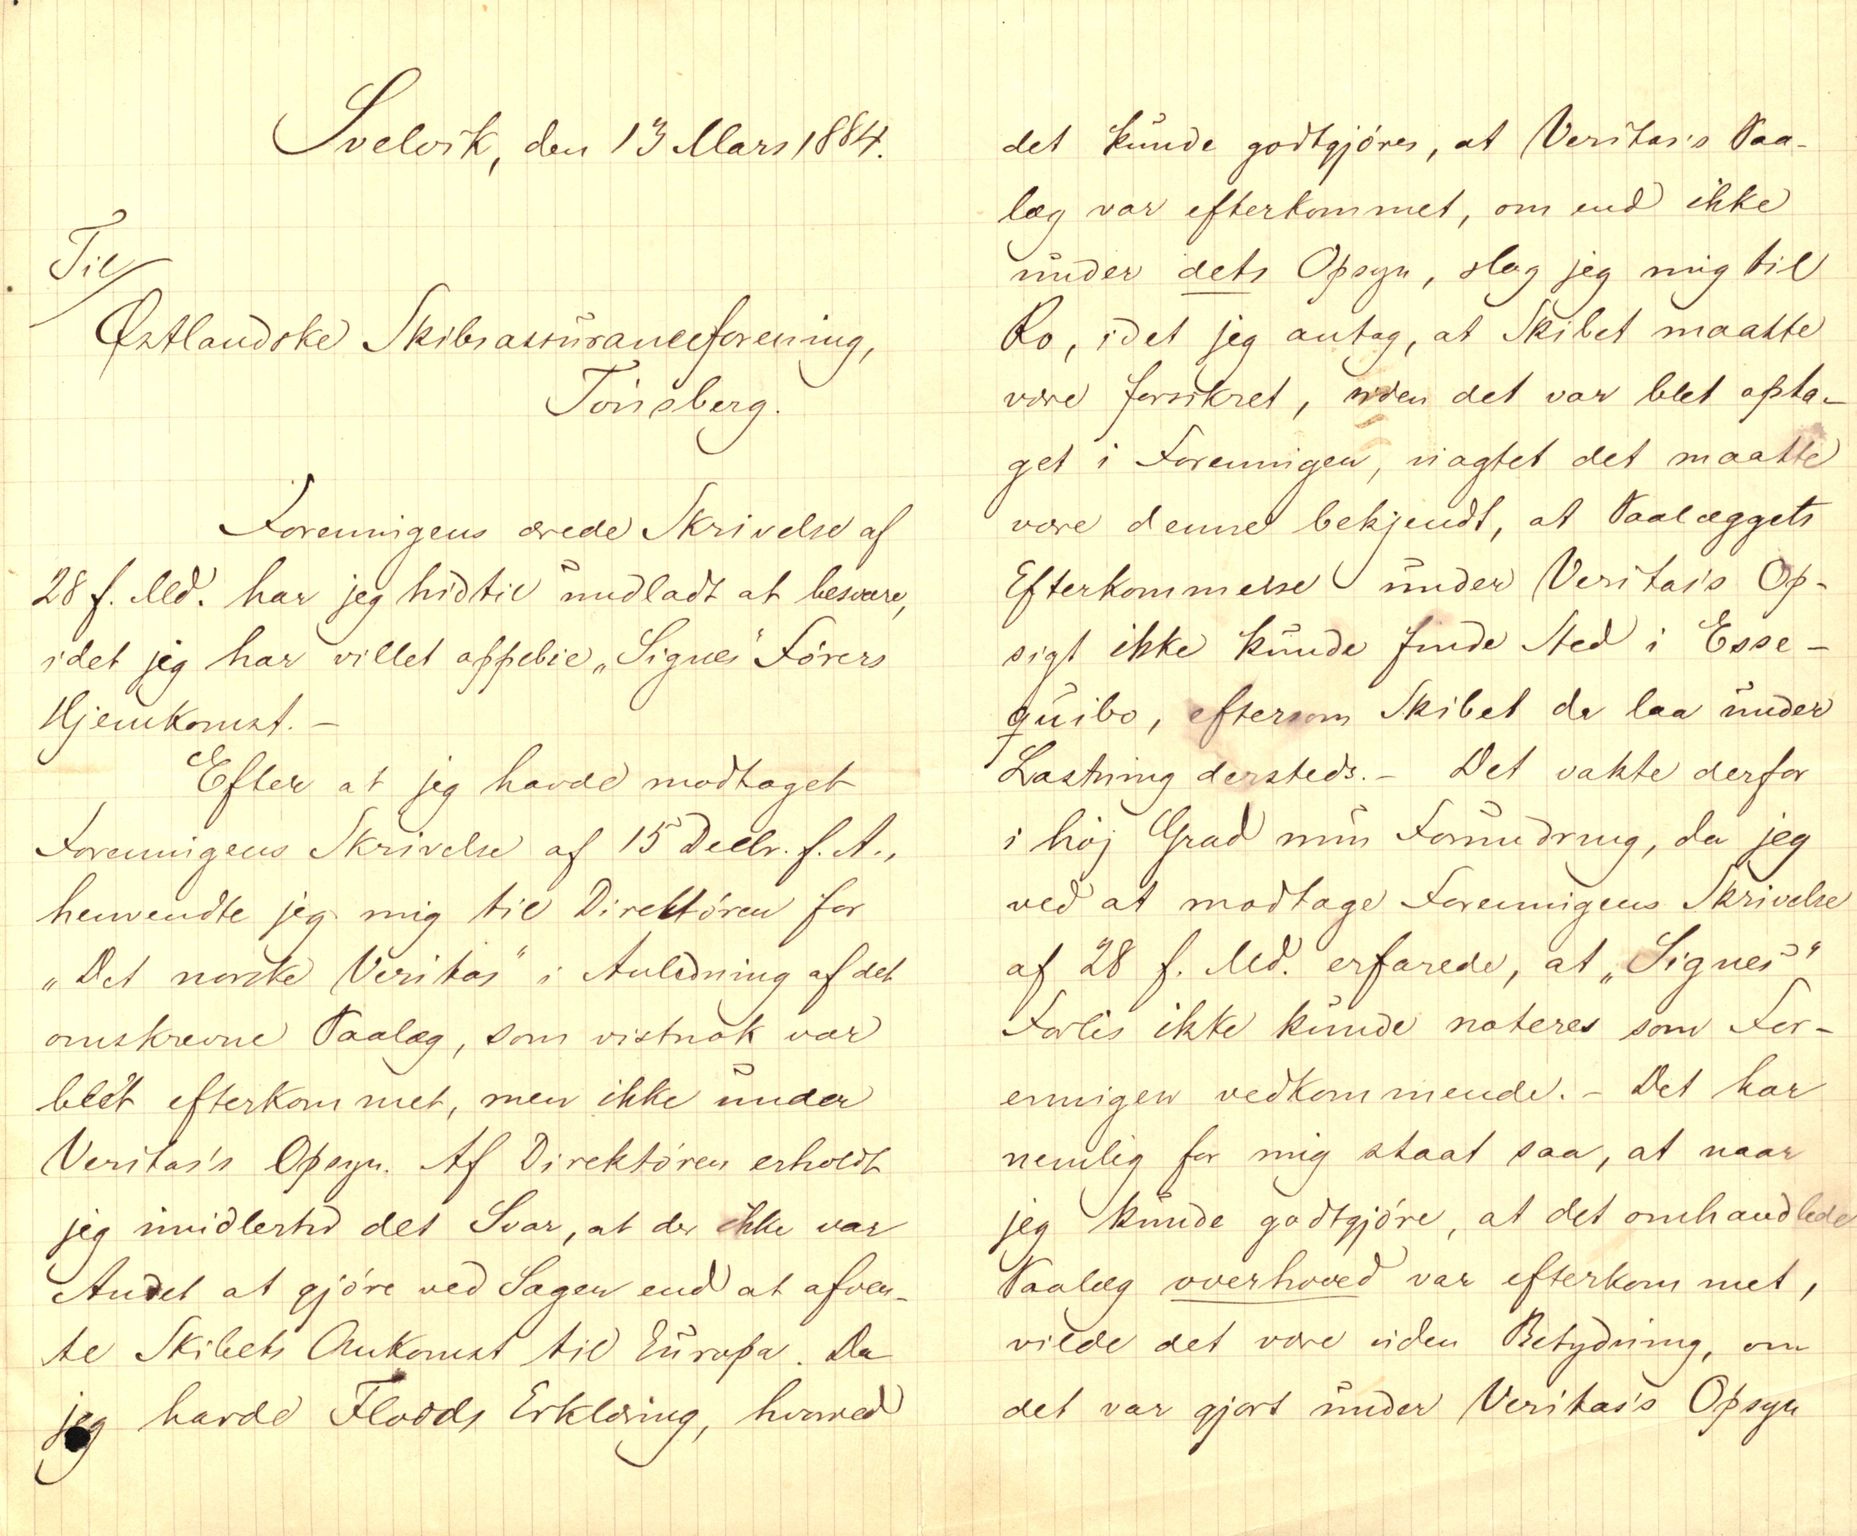 Svelvik, den 13 Mars 1884.
Til
Østlandske Skibsassuranceforening,
Tönsberg.
Foreningens ærede Skrivelse af
28 f. Md. har jeg hidtil undladt at besvare,
idet jeg har villet oppebie „Signes" Förers
Hjemkomst. –
Efter at jeg havde modtaget
Foreningens Skrivelse af 15 Decbr. f. A.,
henvendte jeg mig til Direktören for
„Det norske Veritas" i Anledning af det
omskrevne Paalæg, som vistnok var
blét efterkommet, men ikke under
Veritas's Opsyn. Af Direktören erholdt
jeg imidlertid det Svar, at der ikke var
Andet at gjöre ved Sagen end at afven-
te Skibets Ankomst til Europa. Da
jeg havde Floods Erklæring, hvorved
det kunde godtgjöres, at Veritas's Paa-
læg var efterkommet, om end ikke
under dets Opsyn, slog jeg mig til
Ro, idet jeg antog, at Skibet maatte
være forsikret, siden det var blet opta-
get i Foreningen, uagtet det maatte
være denne bekjendt, at Paalæggets
Efterkommelse under Veritas's Op-
sigt ikke kunde finde Sted i Esse-
quibo, eftersom Skibet da laa under
Lastning dersteds. – Det vakte derfor
i höj Grad min Forundring, da jeg
ved at modtage Foreningens Skrivelse
af 28 f. Md. erfarede, at „Signes"
Forlis ikke kunde noteres som For-
eningen vedkommende. – Det har
nemlig for mig staat saa, at naar
jeg kunde godtgjöre, at det omhandlede
Paalæg overhoved var efterkommet,
vilde det være uden Betydning, om
det var gjort under Veritas's Opsyn